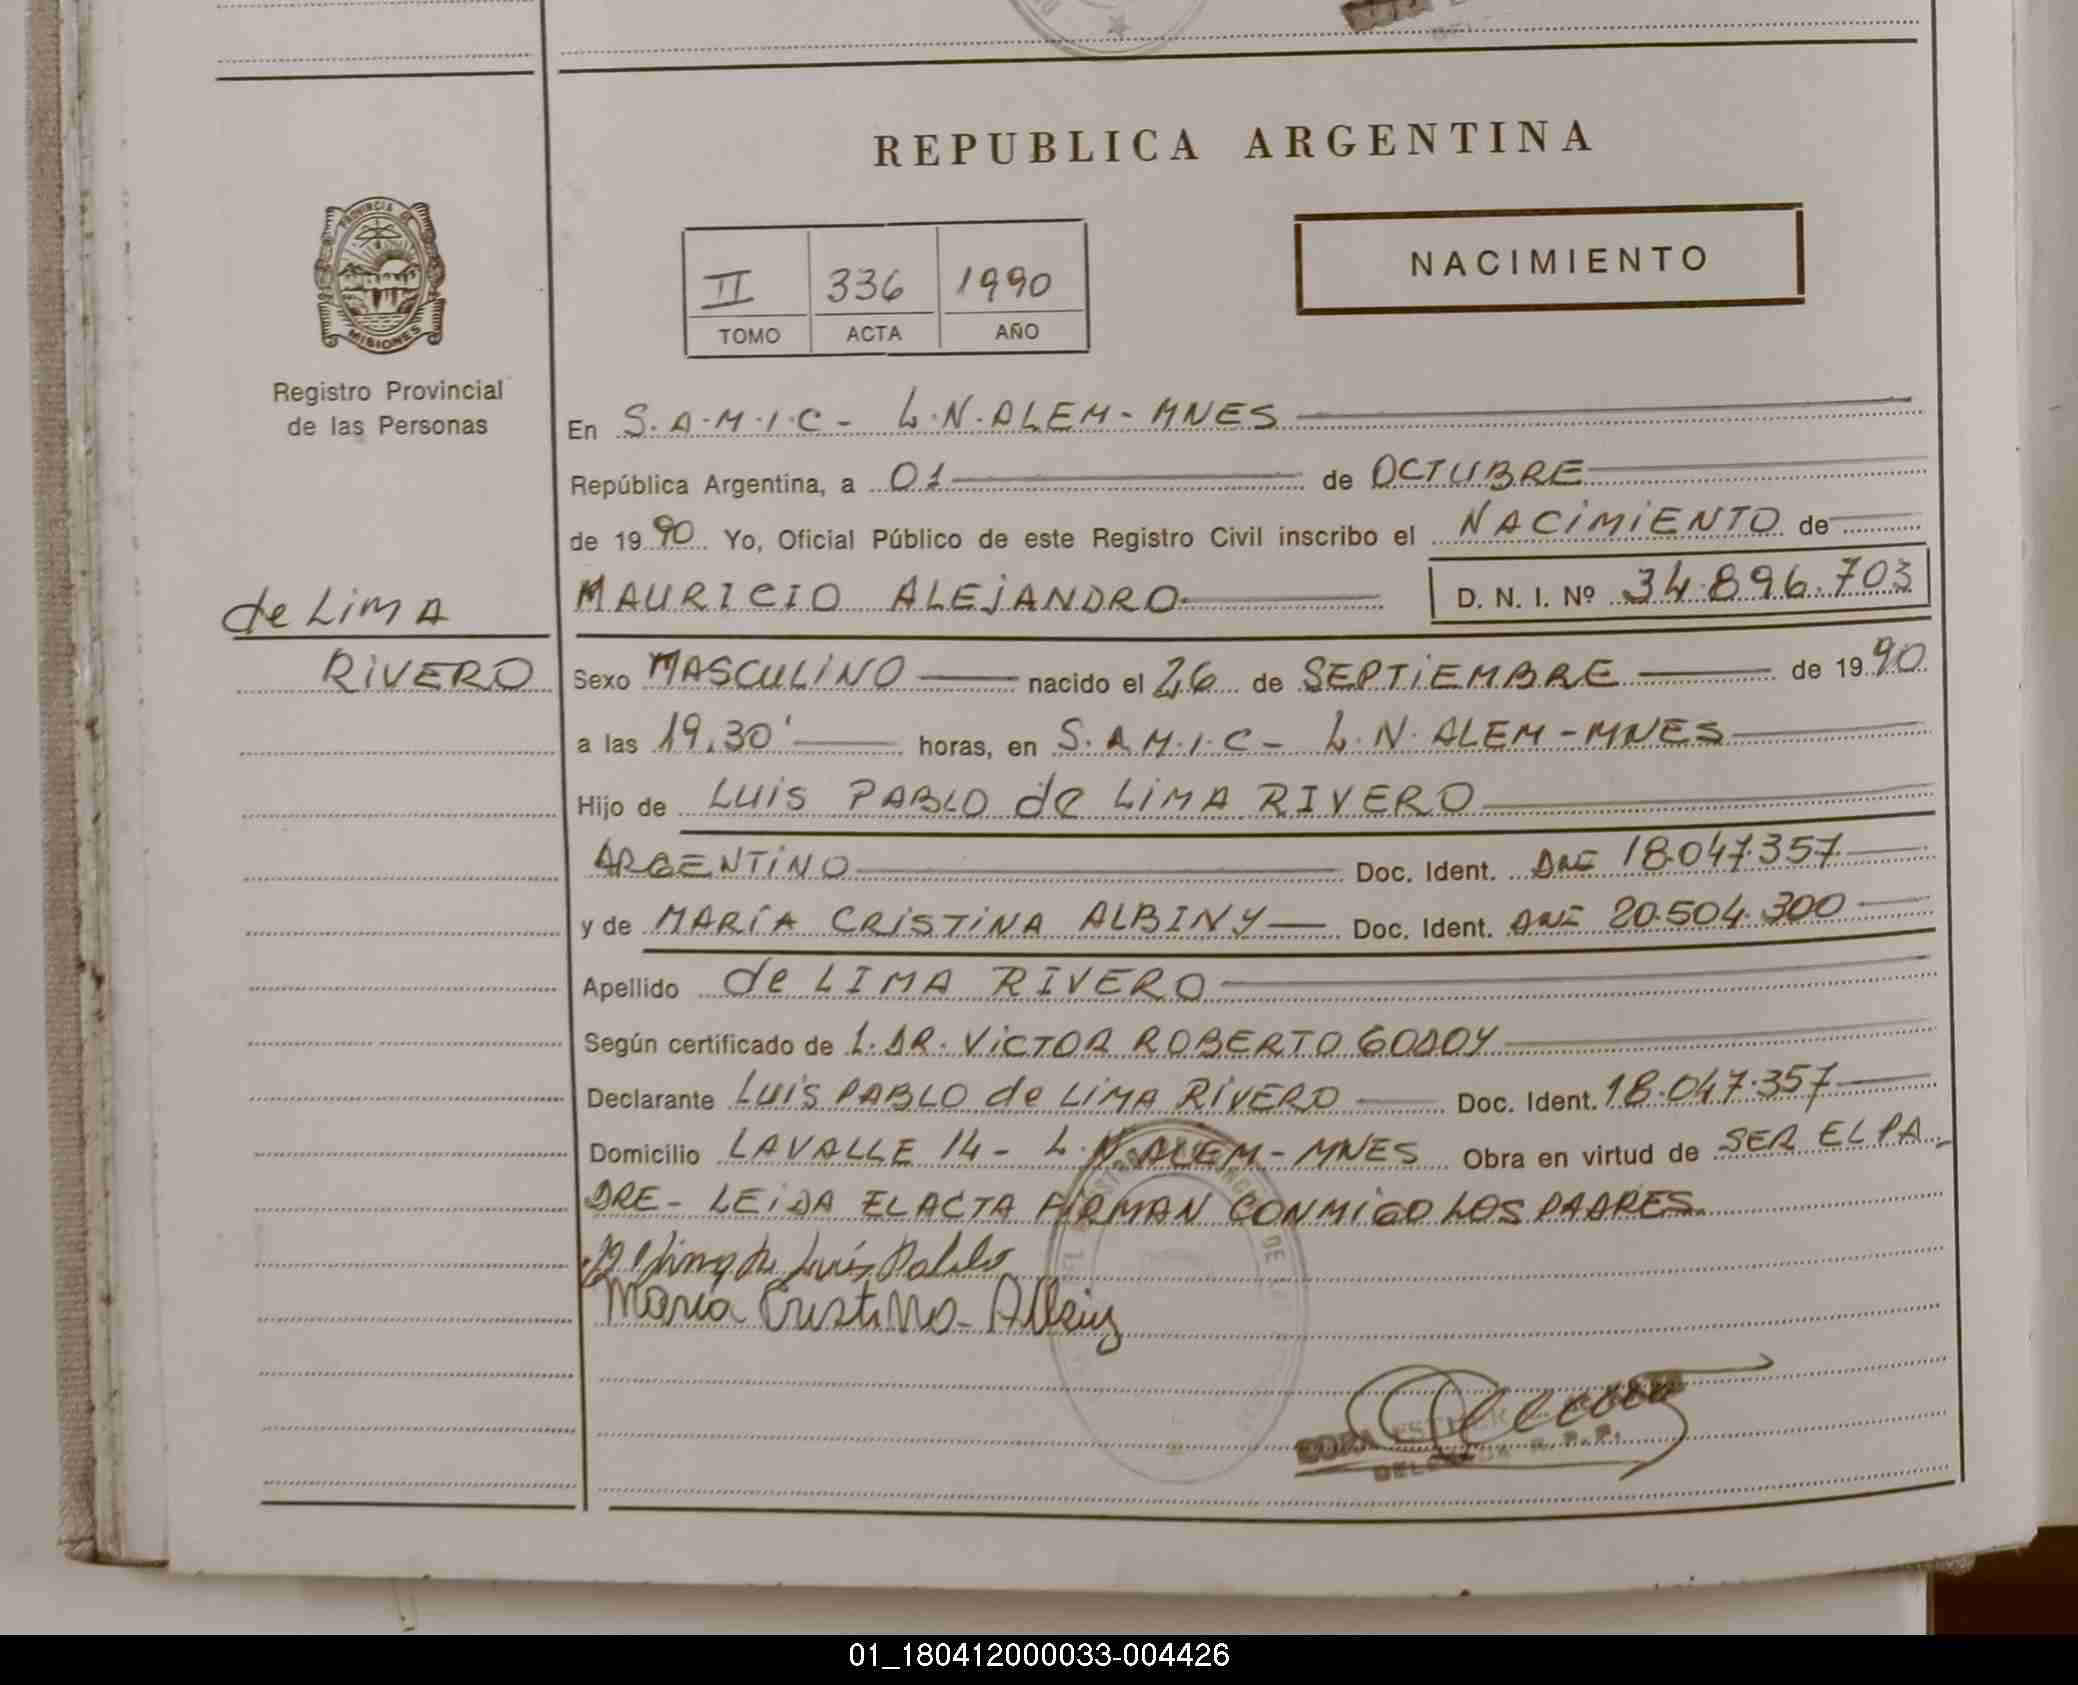 REPUBLICA ARGENTINA
NACIMIENTO
II 336 1990
TOMO ACTA AÑO
PROVINCIA DE
MISIONES
Registro Provincial
de las Personas
En S.A.M.I.C - L.N.ALEM - MNES
República Argentina, a 01 de OCTUBRE
de 1990 Yo, Oficial Público de este Registro Civil inscribo el NACIMIENTO de
MAURICIO ALEJANDRO D. N. I. Nº 34.896.703
de LIMA
RIVERO
Sexo MASCULINO nacido el 26 de SEPTIEMBRE de 1990
a las 19.30' horas, en S.A.M.I.C - L.N.ALEM - MNES
Hijo de LUIS PABLO de LIMA RIVERO
ARGENTINO Doc. Ident. DNI 18.047.357
y de MARÍA CRISTINA ALBINY Doc. Ident. DNI 20.504.300
Apellido de LIMA RIVERO
Según certificado de L. DR. VICTOR ROBERTO GODOY
Declarante LUIS PABLO de LIMA RIVERO Doc. Ident. 18.047.357
Domicilio LAVALLE 14 - L.N.ALEM - MNES Obra en virtud de SER EL PA-
DRE - LEIDA EL ACTA FIRMAN CONMIGO LOS PADRES.
Luis Pablo
Maria Cristina Albiny
ESTHER
DELEGADA R.P.P.
01_180412000033-004426